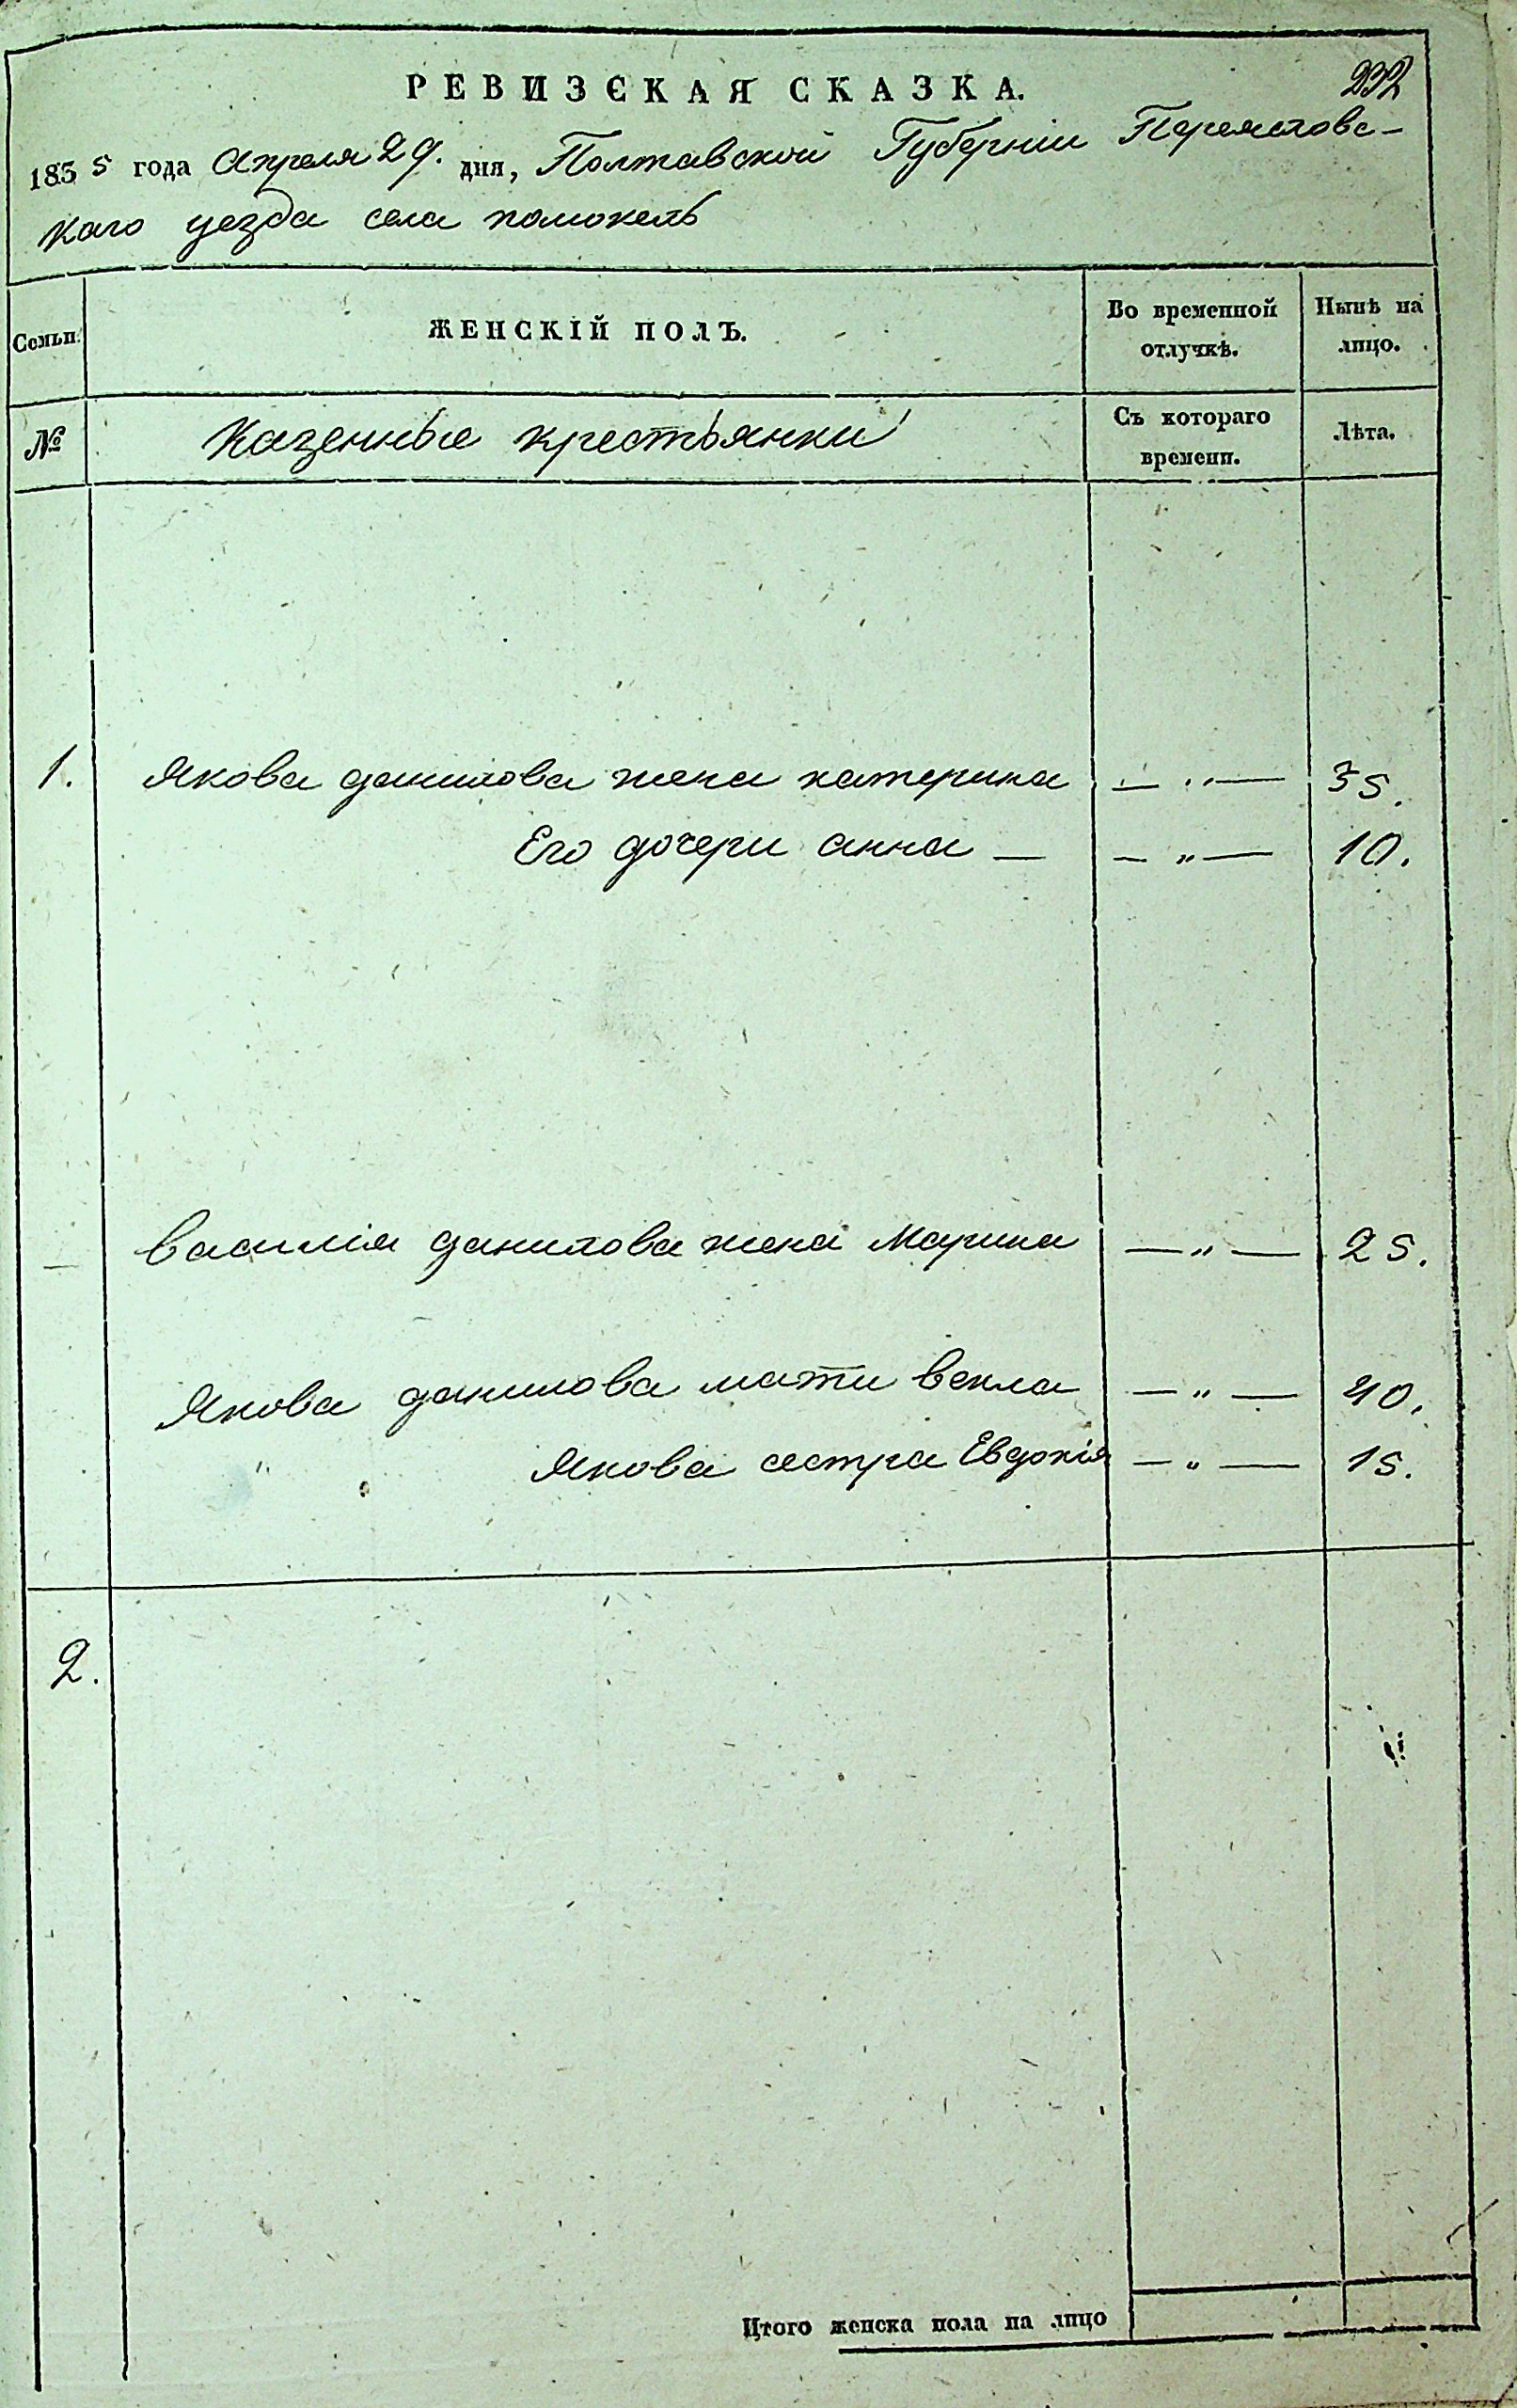 232
РЕВИЗСКАЯ СКАЗКА.
1835 года Апреля 29. дня, Полтавской Губернiи Переяславс-
каго уезда села помокель
Семьи.
ЖЕНСКIЙ ПОЛЪ.
Во временной отлучкѣ.
Нынѣ на лицо.
№
Казенные крестьянки
Съ котораго времени.
Лѣта.
1. Якова данилова жена катерина — „ — 35.
Его дочери анна — — „ — 10.
— василiя данилова жена Марина — „ — 25.
Якова данилова мати векла — „ — 40.
„ Якова сестра Евдокiя — „ — 15.
2.
Итого женска пола на лицо